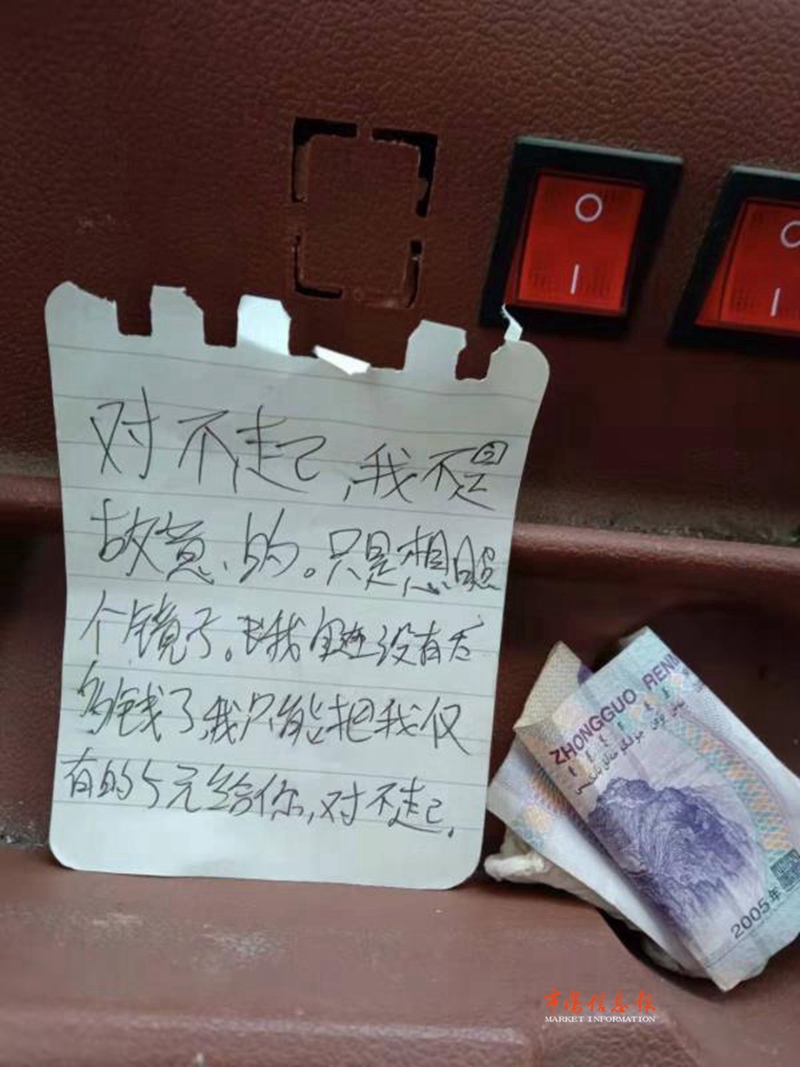 对不起,我不是
故意的。只是想照
个镜子。我身边没有太
多钱了,我只能把我仅
有的5元给你,对不起.
ZHONGGUO RENM
2005年
市场信息报
MARKET INFORMATION